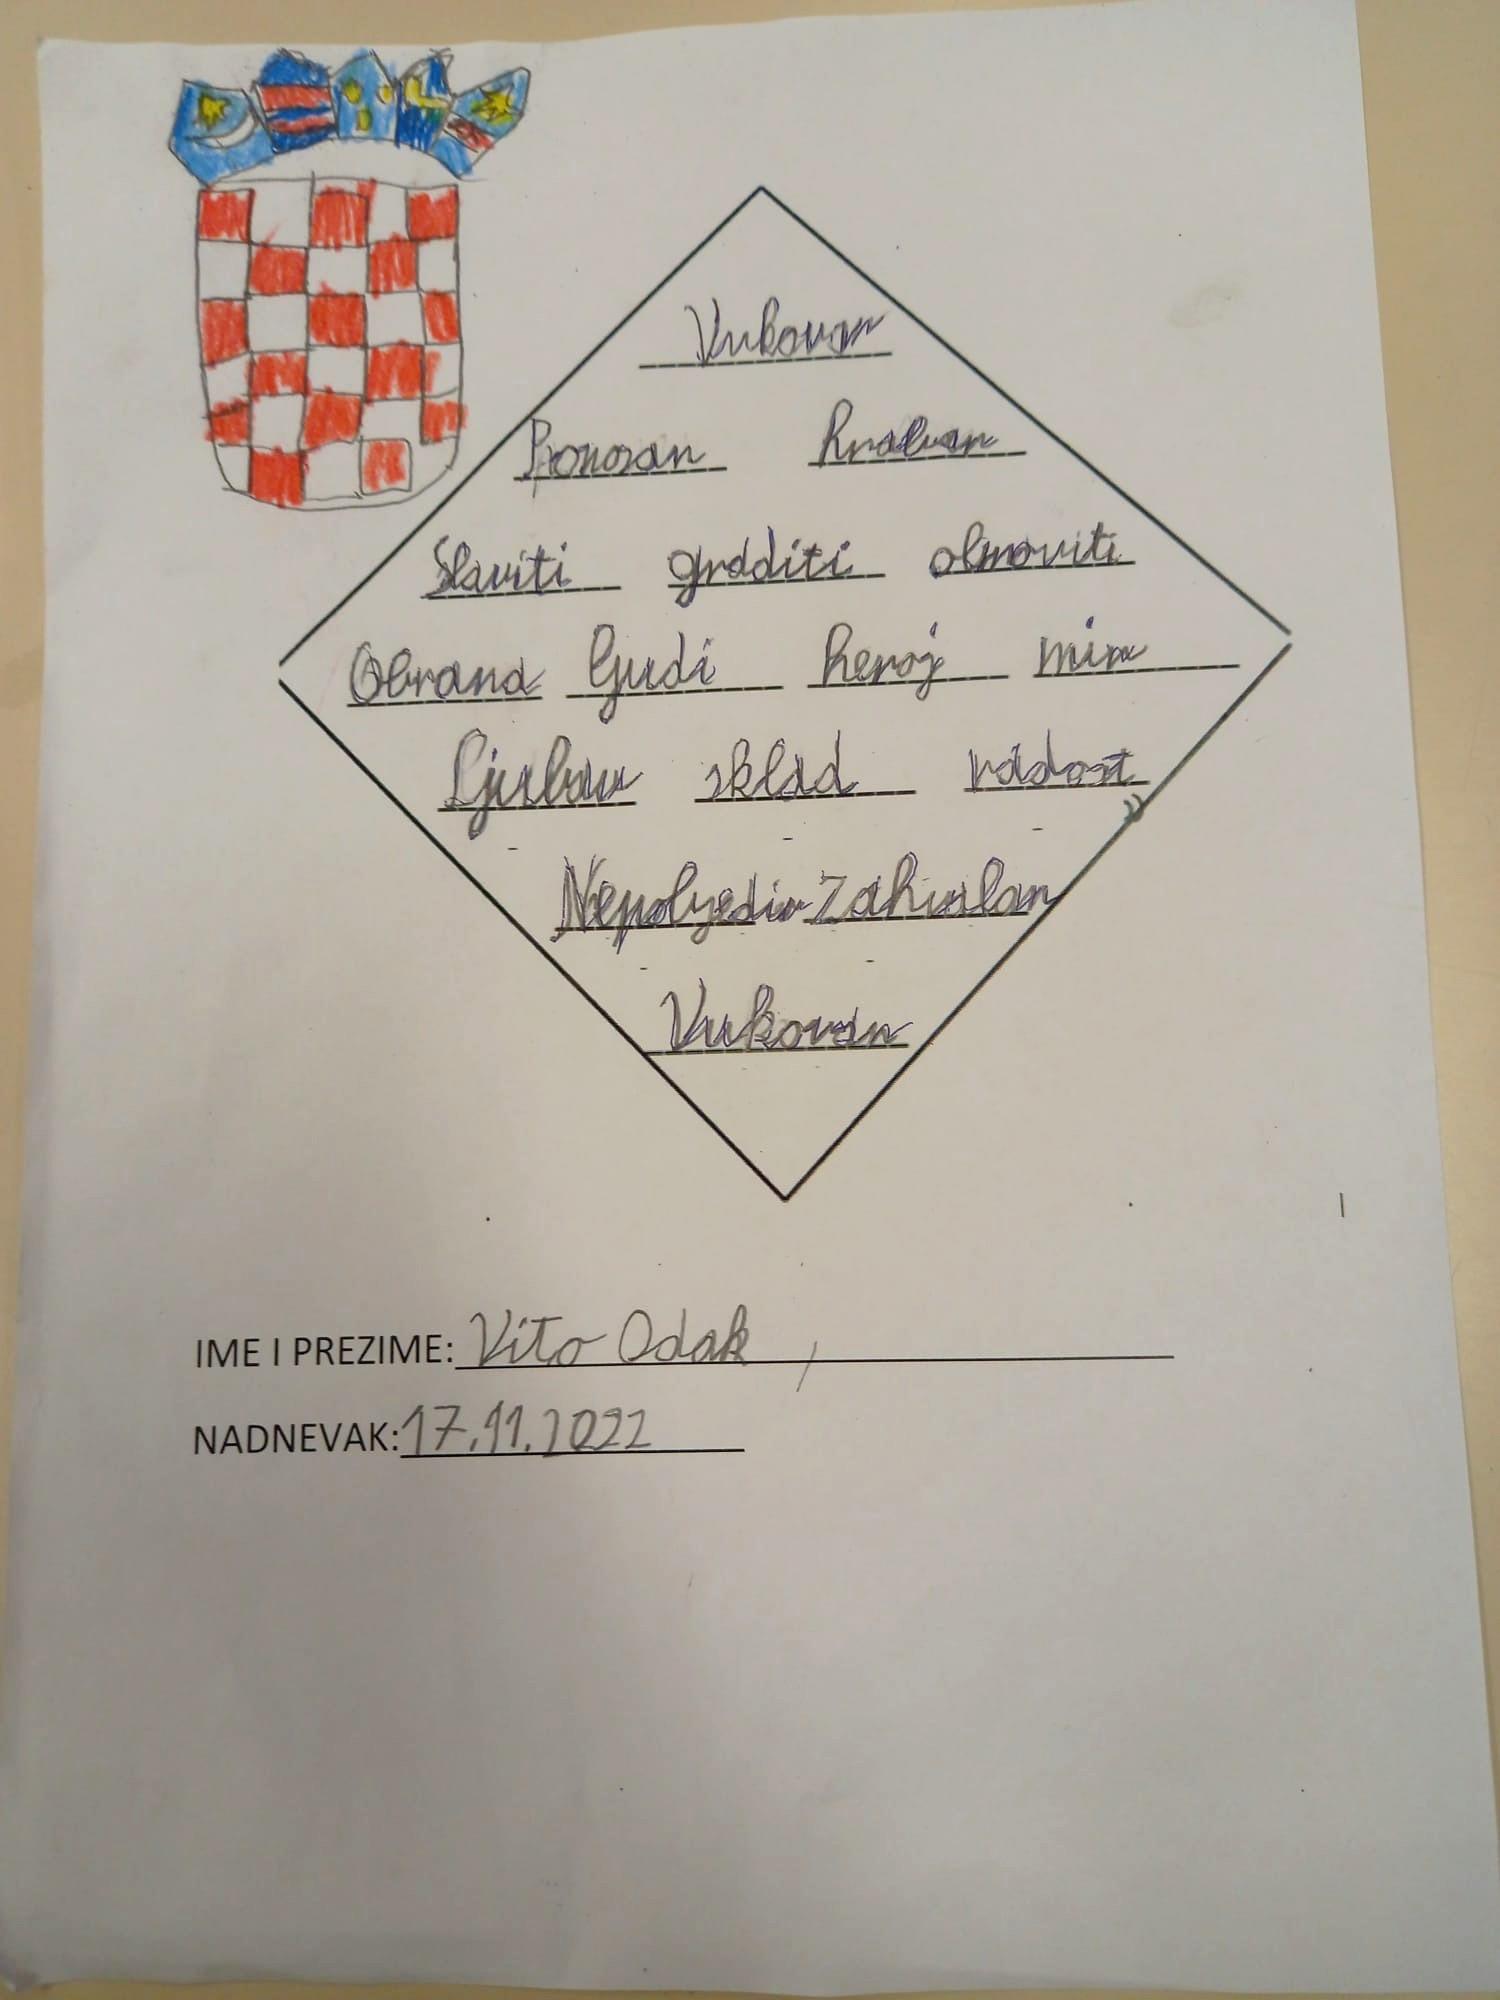 Vukovar
Ponosan hrabar
Slaviti graditi obnoviti
Obrana ljudi heroj mir
Ljubav sklad radost
Nepobjediv Zahvalan
Vukovar
IME I PREZIME: Vito Odak
NADNEVAK: 17.11.2022